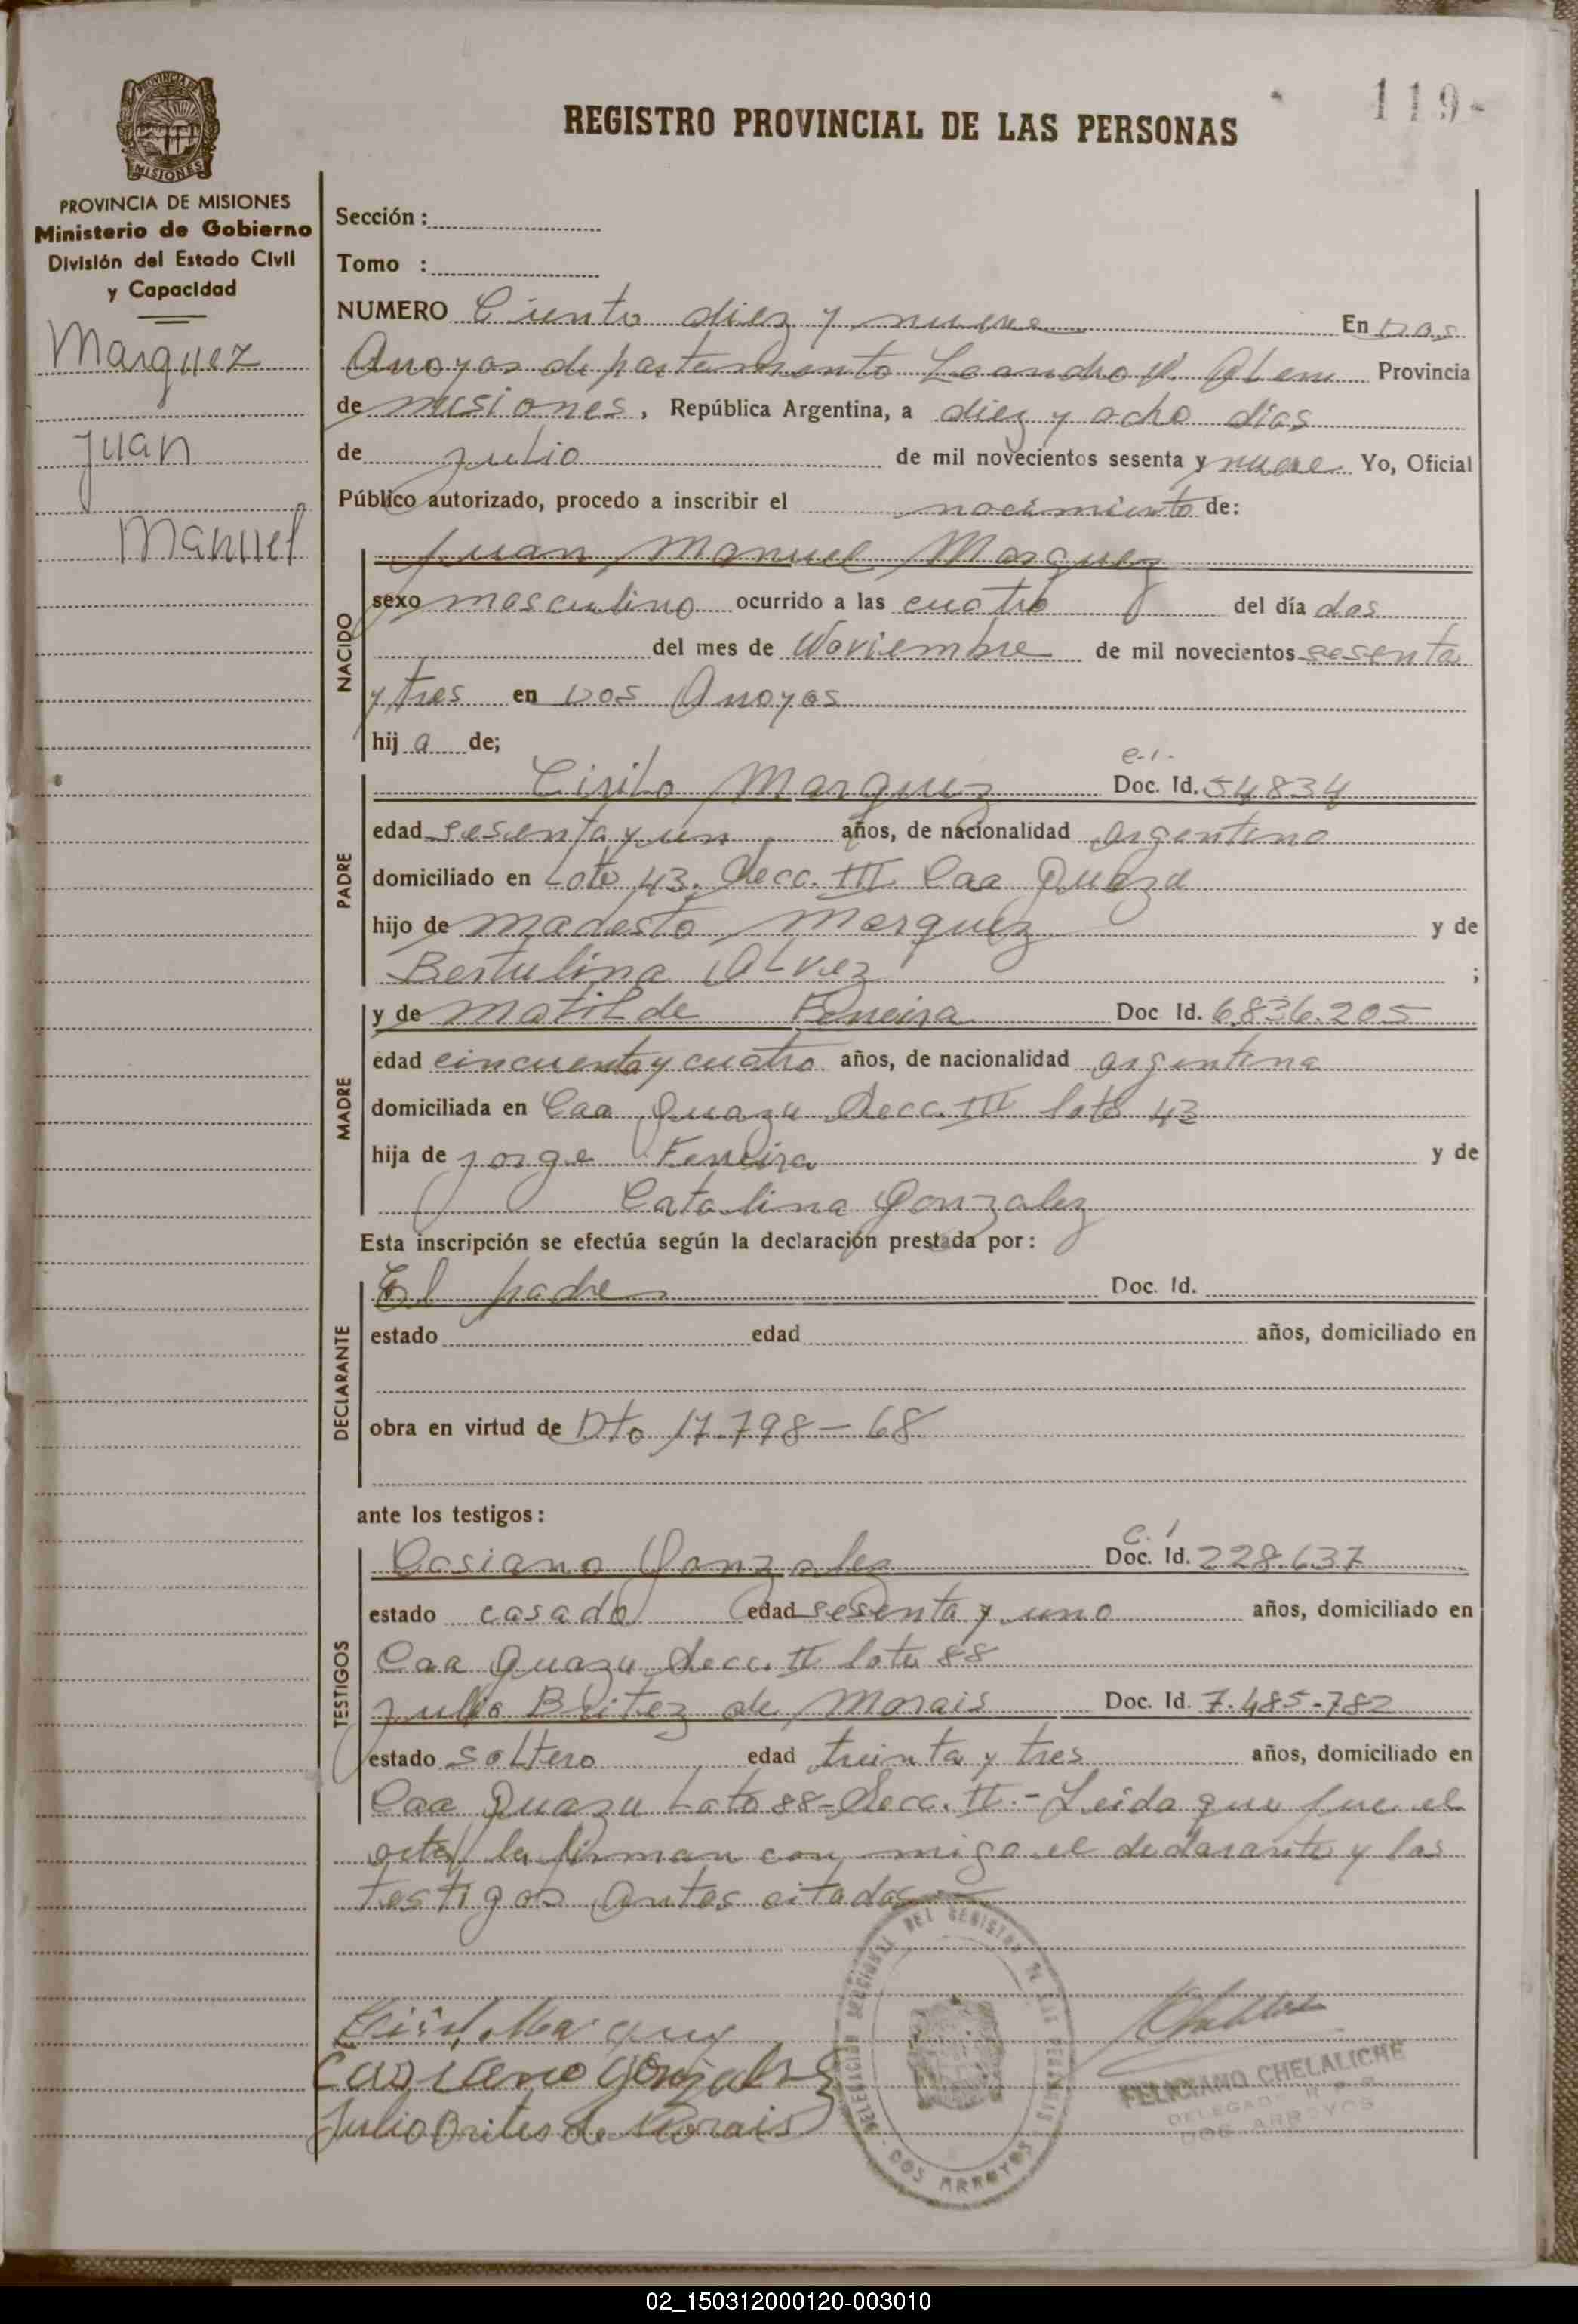 119-
REGISTRO PROVINCIAL DE LAS PERSONAS
PROVINCIA DE MISIONES
MISIONES
PROVINCIA DE MISIONES
Ministerio de Gobierno
División del Estado Civil
y Capacidad
Marquez
Juan
Manuel
Sección :
Tomo :
NUMERO Ciento diez y nueve En Dos
Arroyos departamento Leandro N. Alem Provincia
de misiones, República Argentina, a diez y ocho días
de Julio de mil novecientos sesenta y nueve Yo, Oficial
Público autorizado, procedo a inscribir el nacimiento de:
NACIDO
Juan Manuel Marquez
sexo masculino ocurrido a las cuatro del día dos
del mes de Noviembre de mil novecientos sesenta
y tres en Dos Arroyos
hij a de;
PADRE
Cirilo Marquez c.i. Doc. Id. 54834
edad sesenta y un años, de nacionalidad argentino
domiciliado en Lote 43. Secc. III Caa Guazu
hijo de Modesto Marquez y de
Bertulina Alvez ;
MADRE
y de Matilde Ferreira Doc Id. 6.836.205
edad cincuenta y cuatro años, de nacionalidad argentina
domiciliada en Caa Guazu Secc. III lote 43
hija de Jorge Ferreira y de
Catalina Gonzalez
Esta inscripción se efectúa según la declaración prestada por:
DECLARANTE
El padre Doc. Id.
estado edad años, domiciliado en
obra en virtud de Dto 17.798-68
ante los testigos:
TESTIGOS
Casiano Gonzalez C.I Doc. Id. 228.637
estado casado edad sesenta y uno años, domiciliado en
Caa Guazu Secc. II lote 88
Julio Britez de Morais Doc. Id. 7.485.782
estado soltero edad treinta y tres años, domiciliado en
Caa Guazu Lote 88-Secc. II.- Leida que fue el
acta, la firman con migo el declarante y los
testigos antes citados
Cirilo Marquez
Casiano Gonzalez
Julio Brites de Morais
DELEGACION SECCIONAL DEL REGISTRO DE LAS PERSONAS
DOS ARROYOS
FELICIANO CHELALICHE
DELEGADO R. P. P.
DOS ARROYOS
02_150312000120-003010